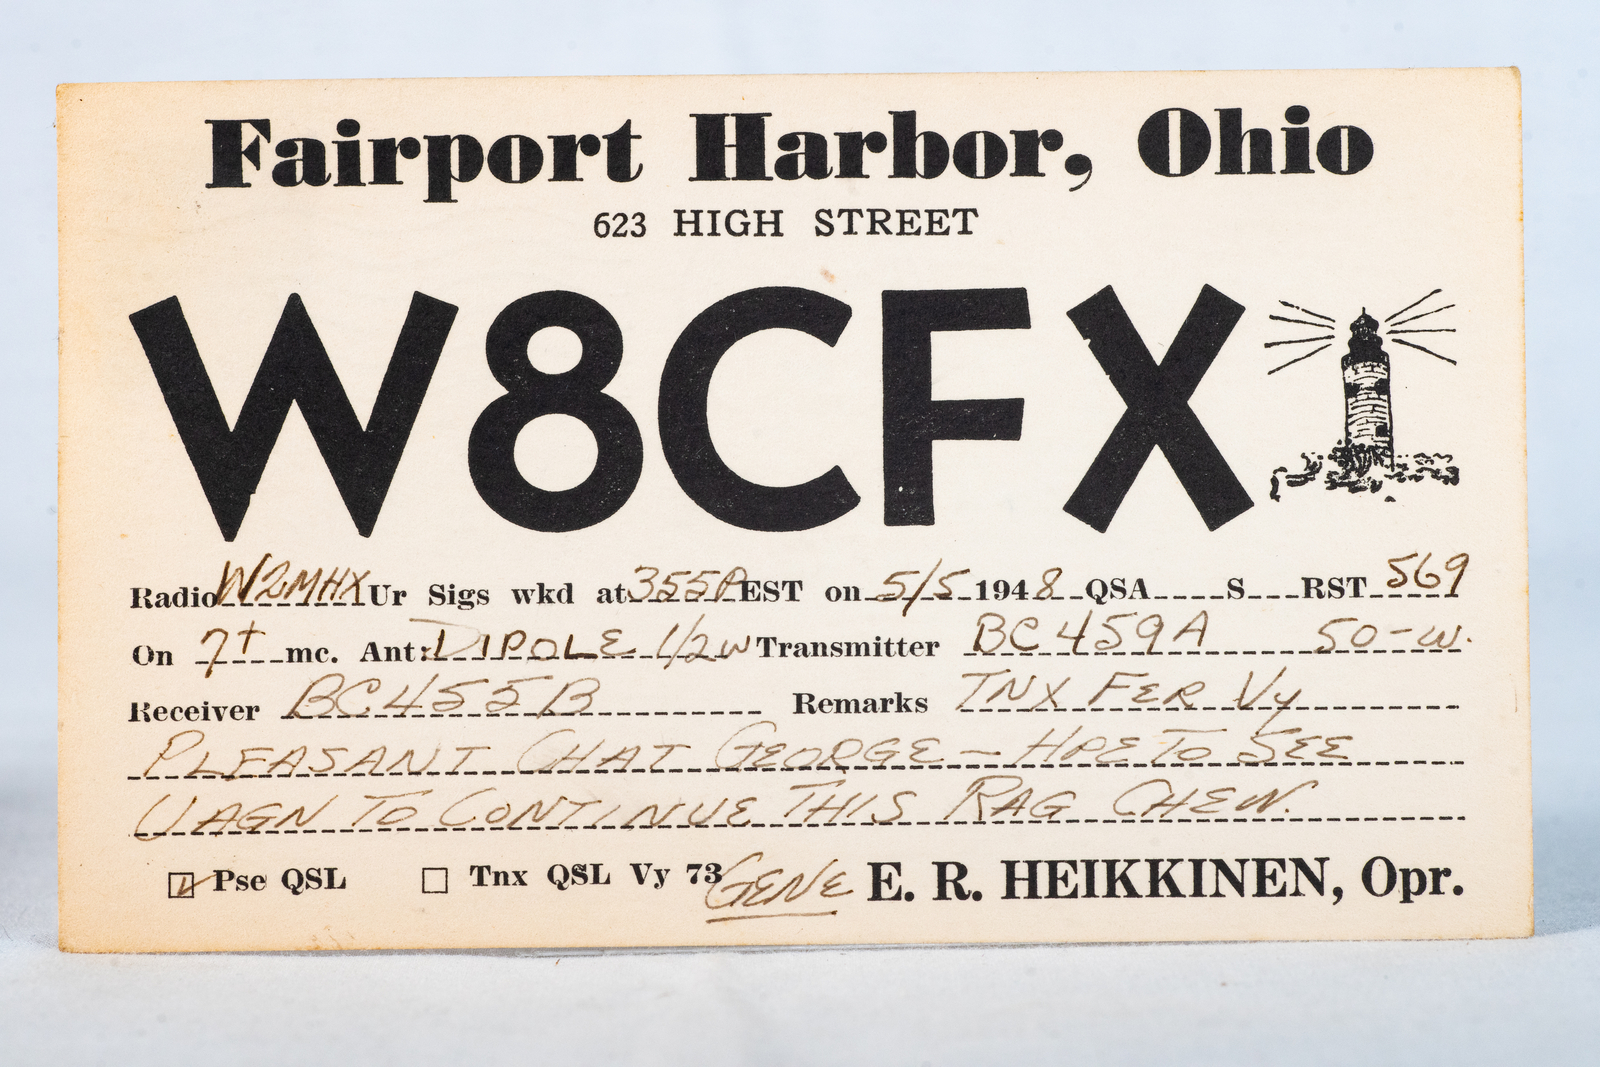 Fairport Harbor, Ohio
623 HIGH STREET
W8CFX
Radio W2MHX Ur Sigs wkd at 355P EST on 5/5 1948 QSA S RST 569
On 7+ mc. Ant: DIPOLE 1/2W Transmitter BC459A 50-W.
Receiver BC455B Remarks TNX FER Vy
PLEASANT CHAT GEORGE - HPE TO SEE
U AGN TO CONTINUE THIS RAG CHEW.
Pse QSL Tnx QSL Vy 73 GENE E. R. HEIKKINEN, Opr.